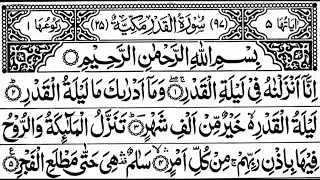 اٰيَاتُهَا ٥ (٩٧) سُوْرَةُ الْقَدْرِ مَكِّيَّةٌ (٢٥) رُكُوْعُهَا ١
بِسْمِ اللّٰهِ الرَّحْمٰنِ الرَّحِيْمِ
اِنَّآ اَنْزَلْنٰهُ فِيْ لَيْلَةِ الْقَدْرِ ۚۖ ۝١ وَمَآ اَدْرٰىكَ مَا لَيْلَةُ الْقَدْرِ ۝٢
لَيْلَةُ الْقَدْرِ ەۙ خَيْرٌ مِّنْ اَلْفِ شَهْرٍ ۝٣ تَنَزَّلُ الْمَلٰٓئِكَةُ وَالرُّوْحُ
فِيْهَا بِاِذْنِ رَبِّهِمْ ۚ مِنْ كُلِّ اَمْرٍ ۝٤ سَلٰمٌ ۛ هِيَ حَتّٰى مَطْلَعِ الْفَجْرِ ۝٥